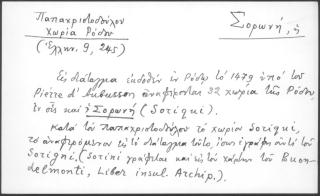 Παπαχριστοδούλου
Χωρία Ρόδου
(Ἑλλην. 9, 245)
Σορωνή, ἡ
Εἰς διάταγμα ἐκδοθέν ἐν Ρόδῳ τό 1479 ὑπό τοῦ
Pierre d' Aubusson ἀναφέρονται 32 χωρία τῆς Ρόδου,
ἐν οἷς καί ἡ Σορωνή (Sorigui).
Κατά τόν Παπαχριστοδούλου τό χωρίον Sorigui,
τό ἀναφερόμενον εἰς τό διάταγμα τοῦτο, ἴσως ἐγράφη ἀντί τοῦ
Sorigni, (Sorini γράφεται καί εἰς τόν χάρτην τοῦ Buon-
delmonti, Liber insul. Archip.).